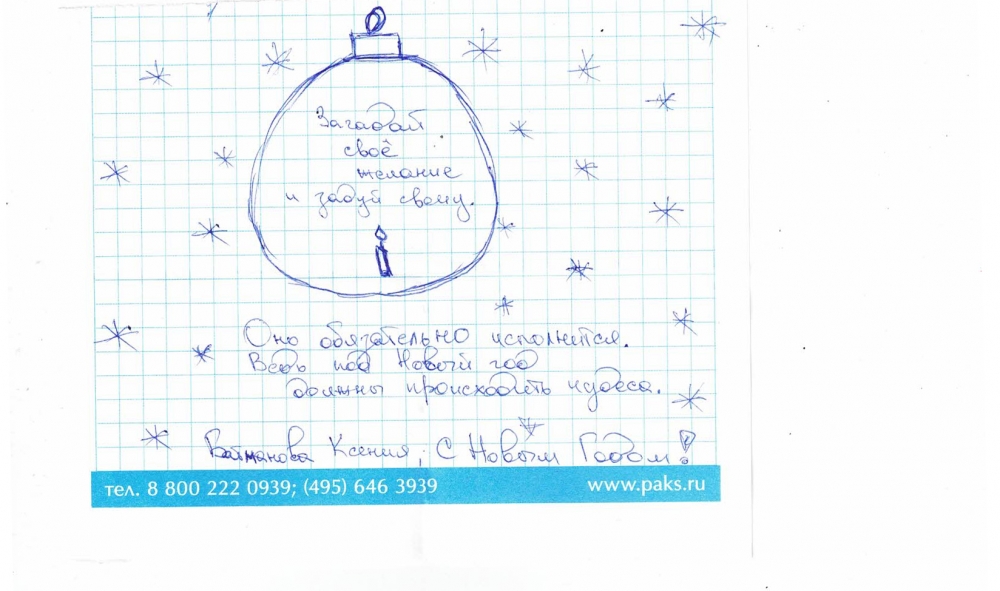 Загадай
своё
желание
и задуй свечу.
Оно обязательно исполнится.
Ведь под Новый год
должны происходить чудеса.
Ксения, С Новым Годом!
тел. 8 800 222 0939; (495) 646 3939
www.paks.ru